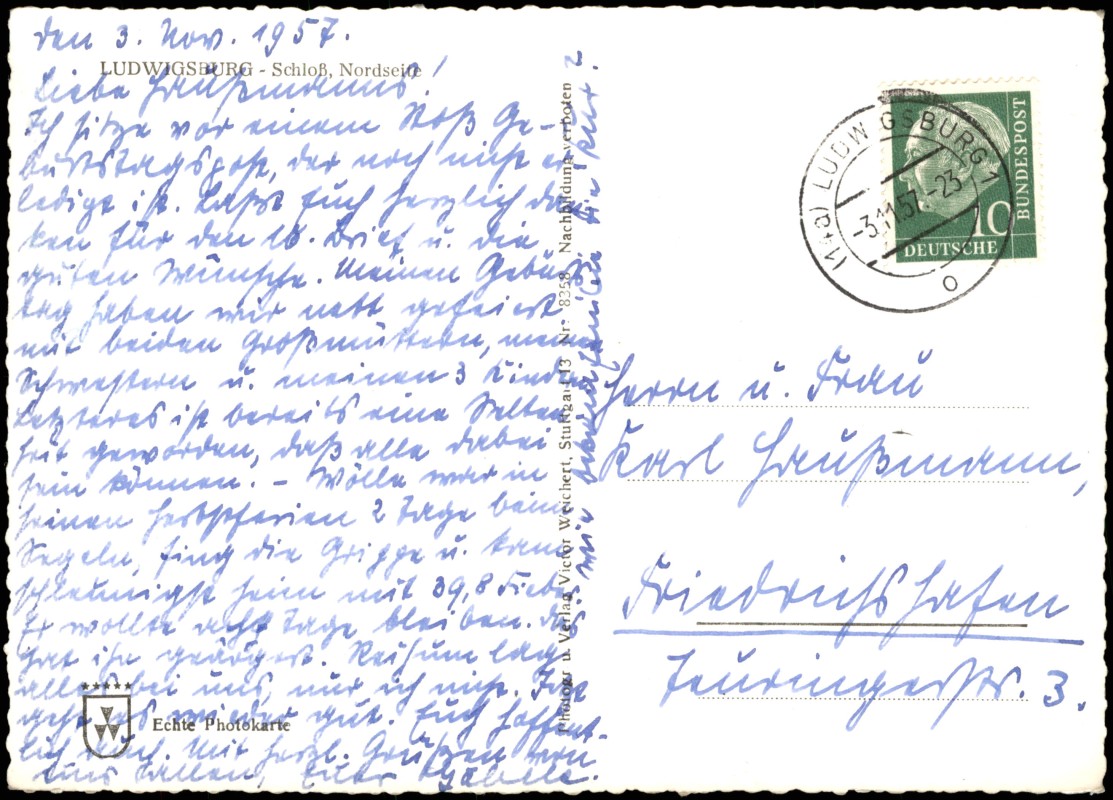 den 3. Nov. 1957.
LUDWIGSBURG - Schloß, Nordseite
Liebe Haußmanns!
Ich sitze vor einem Stoß Ge-
burtstagspost, der noch nicht er-
ledigt ist. Laßt Euch herzlich dan-
ken für den lb. Brief u. die
guten Wünsche. Meinen Geburts-
tag haben wir nett gefeiert
mit beiden Großmüttern, meinen
Schwestern u. meinen 3 Kindern
Letzteres ist bereits eine Selten-
heit geworden, daß alle dabei
sein können. – Wölle war in
seinen Herbstferien 2 Tage beim
Segeln, fing die Grippe u. kam
schleunigst heim mit 39,8 Fieber
Er wollte acht Tage bleiben. Das
hat ihn geärgert. Reihum lag
alles bei uns, nur ich nicht. Jetzt
geht es wieder gut. Euch hoffent-
lich auch. Mit herzl. Grüßen von
uns allen, Euer
wie die Kur?
Echte Photokarte
Photogr. u. Verlag Victor Weichert, Stuttgart 13 Nr. 8358 Nachbildung verboten
(14a) LUDWIGSBURG 1
-3.11.57.-23
o
10
DEUTSCHE
BUNDESPOST
Herrn u. Frau
Karl Haußmann,
Friedrichshafen
Teuringerstr. 3.